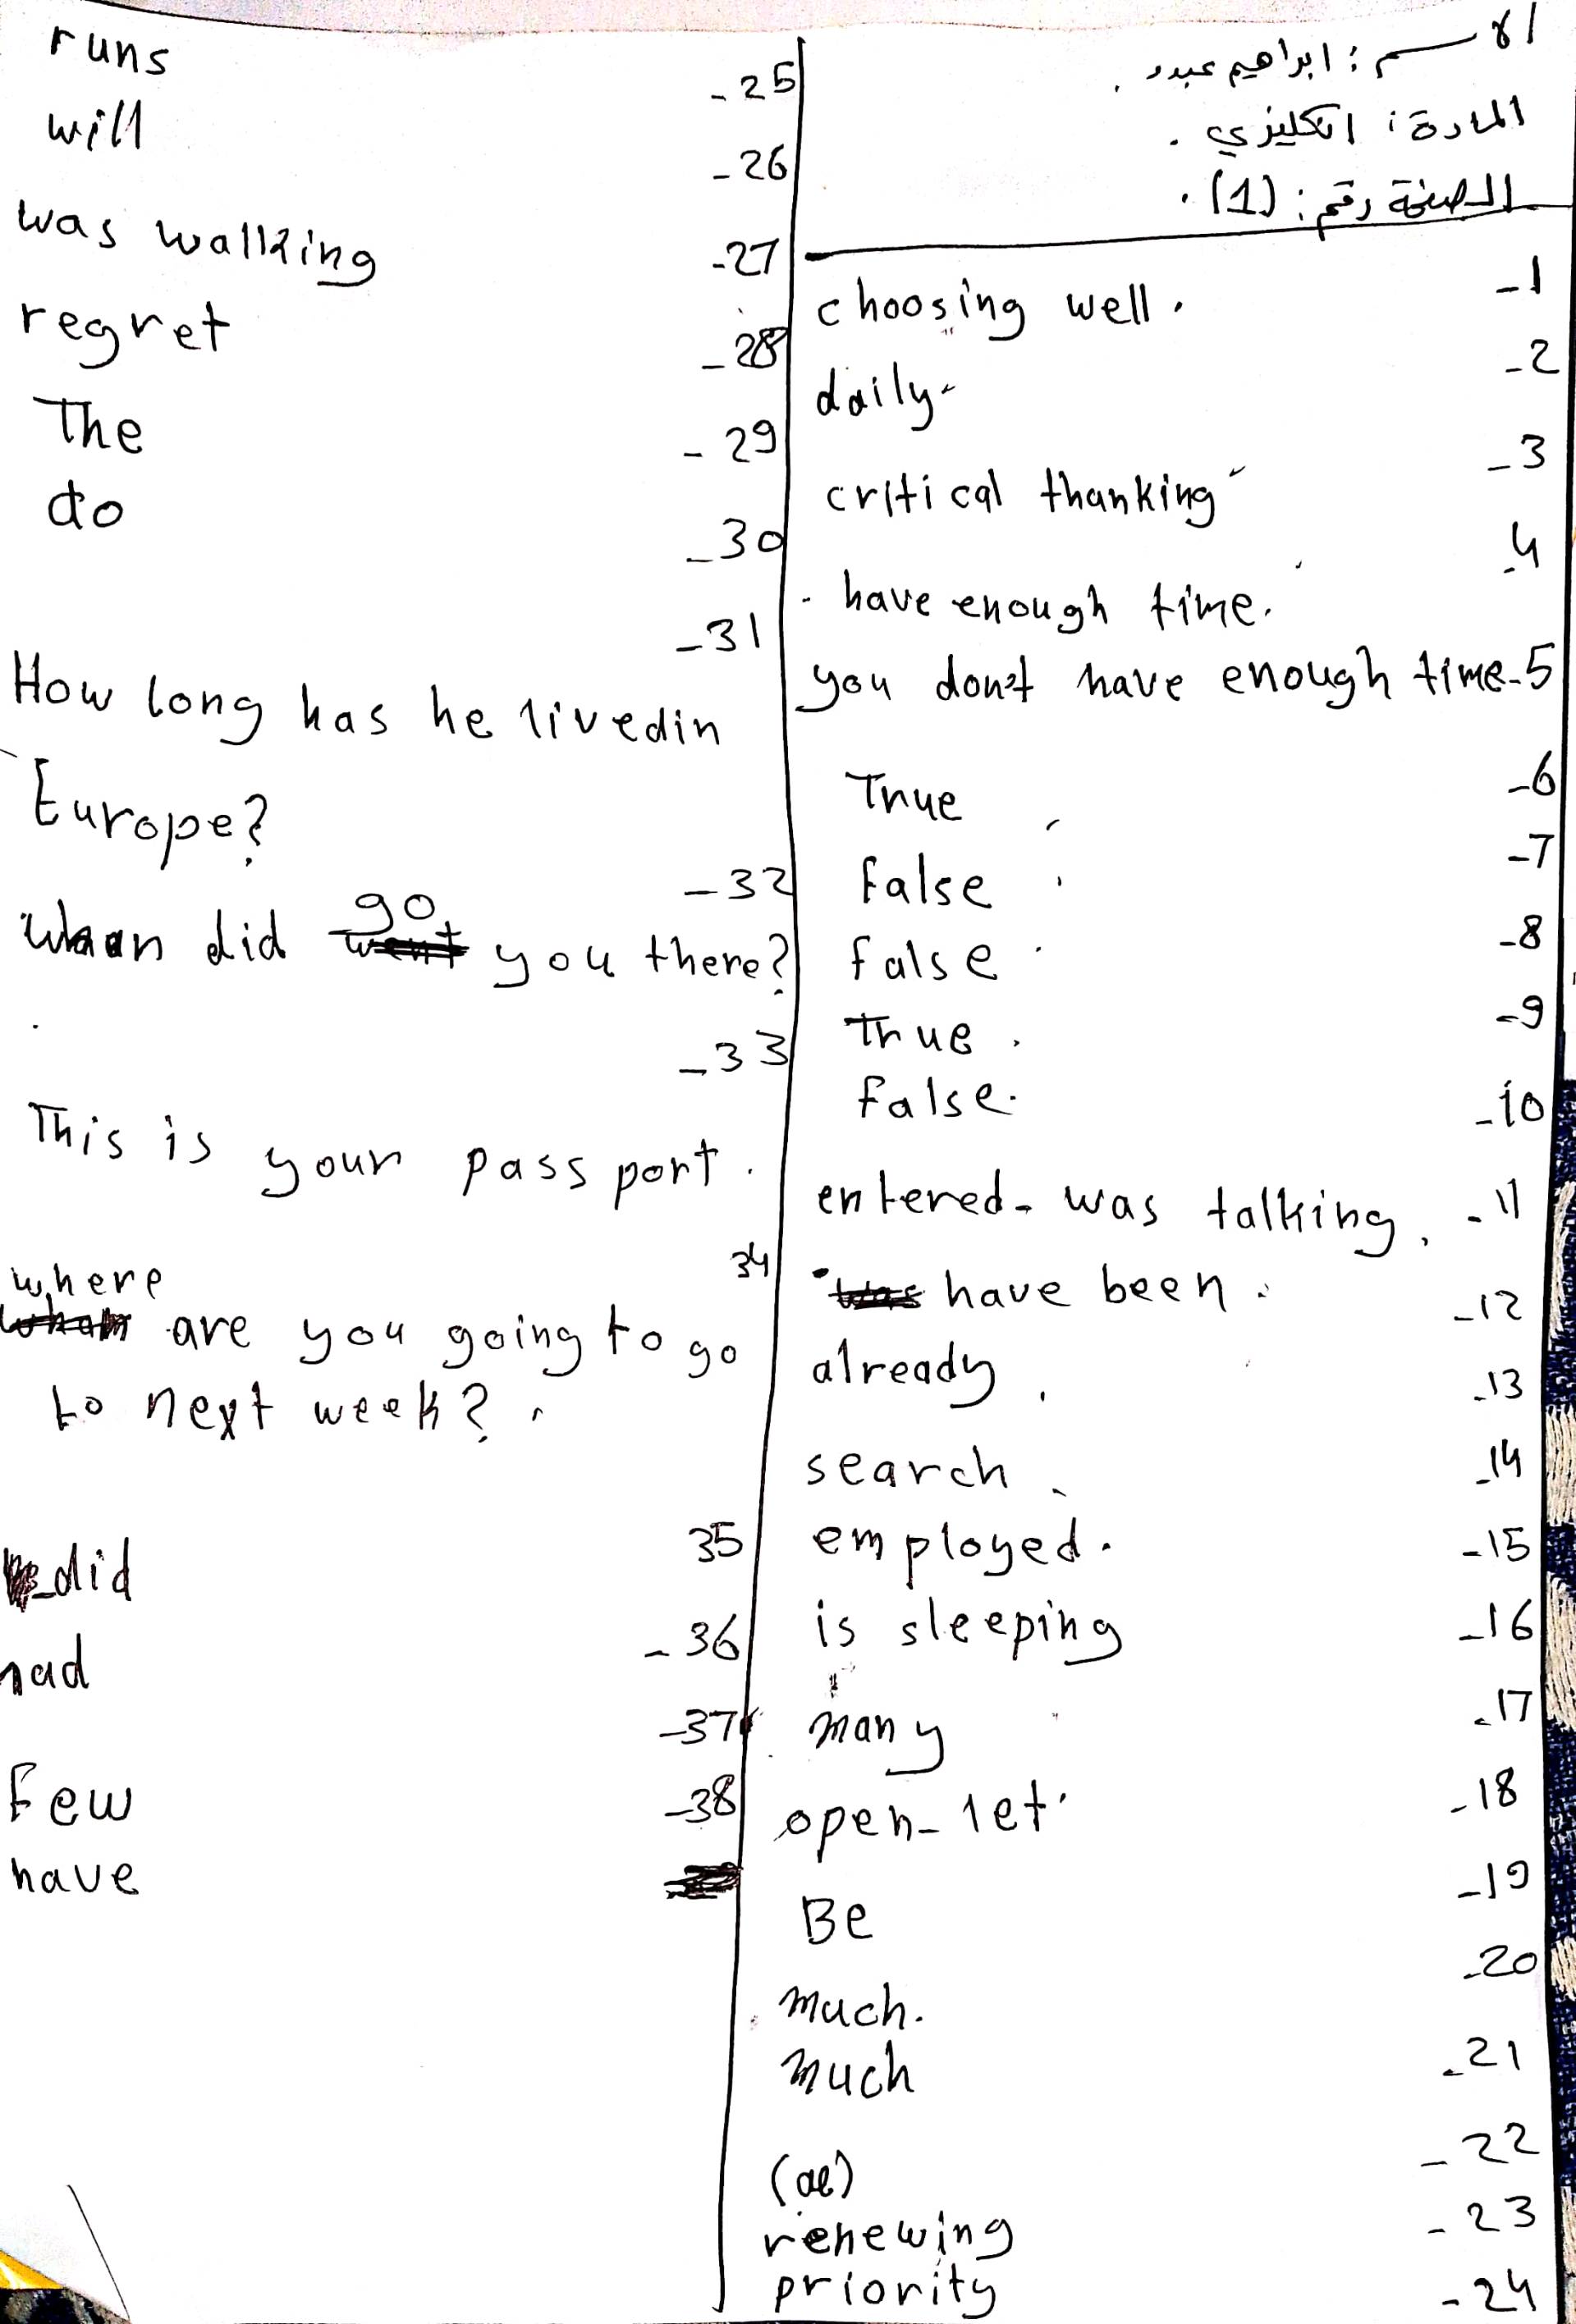 الاسم : ابراهيم عبدو .
المادة : انكليزي .
الصفحة رقم : (1) .
1- choosing well.
2- daily
3- critical thanking
4- have enough time.
5- you don't have enough time
6- True
7- False
8- false
9- True.
10- False.
11- entered- was talking.
12- have been.
13- already.
14- search
15- employed.
16- is sleeping
17- many
18- open- let
19- Be
20- much.
21- much
22- (ae)
23- renewing
24- priority
25- runs
26- will
27- was walking
28- regret
29- The
30- do
31-
How long has he livedin
Europe?
32-
when did go you there?
33-
This is your pass port.
34
where are you going to go
to next week?
35 did
36- had
37- Few
38- have